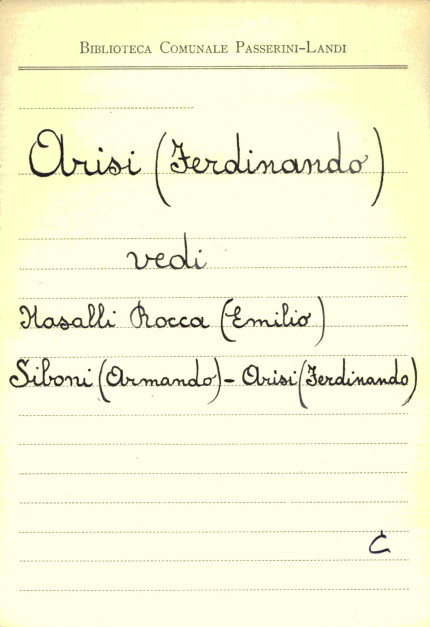 Biblioteca Comunale Passerini-Landi
Arisi (Ferdinando)
vedi
Nasalli Rocca (Emilio)
Siboni (Armando) - Arisi (Ferdinando)
C